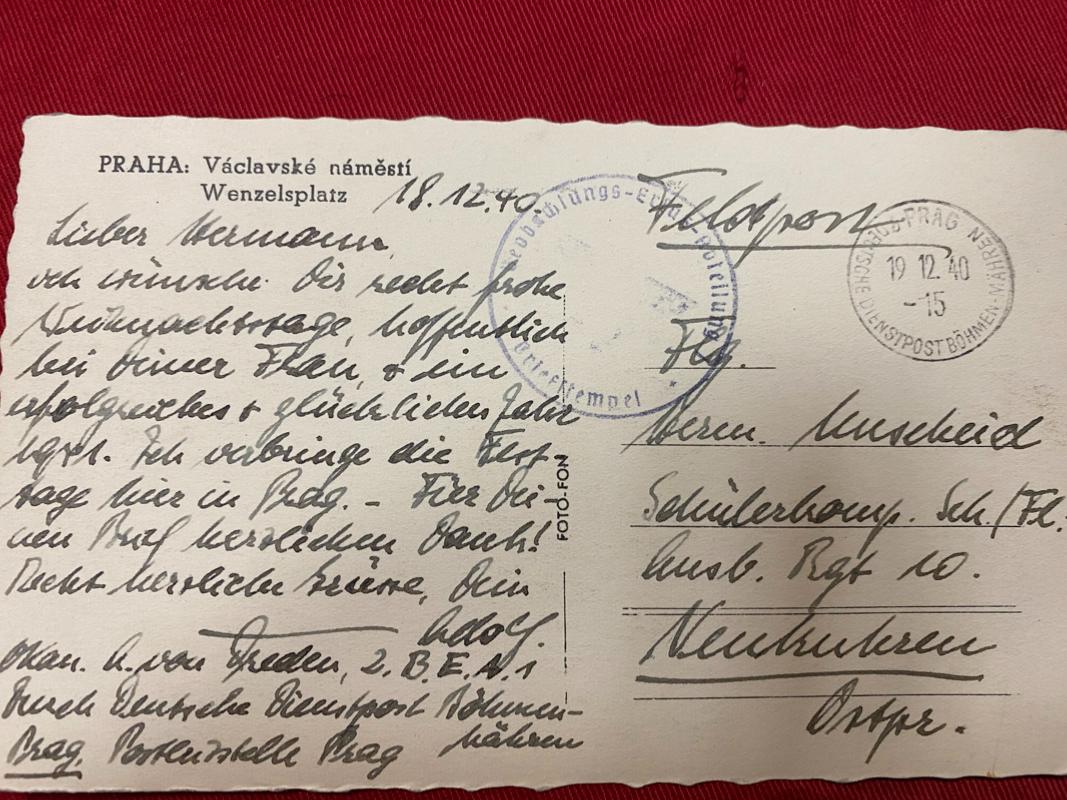 PRAHA: Václavské náměstí
Wenzelsplatz
18.12.40.
Lieber Hermann,
ich wünsche Dir recht frohe
Weihnachtstage, hoffentlich
bei Deiner Frau, & ein
erfolgreiches & glückliches Jahr
1941. Ich verbringe die Fest-
tage hier in Prag. - Für Dei-
nen Brief herzlichen Dank!
Recht herzliche Grüsse, Dein
Adolf.
Okan. A. von Freden, 2. B.E.A. 1
Durch Deutsche Dienstpost Böhmen-
Mähren
Prag, Postleitstelle Prag
FOTO-FON
Beobachtungs-Ersatz-Abteilung
Briefstempel
Feldpost
PRAG
DEUTSCHE DIENSTPOST BÖHMEN-MÄHREN
19 12.40
-15
Flg.
Herm. Unscheid
Schülerkomp. Sch./Fl.
Ausb. Rgt 10.
Neukuhren
Ostpr.